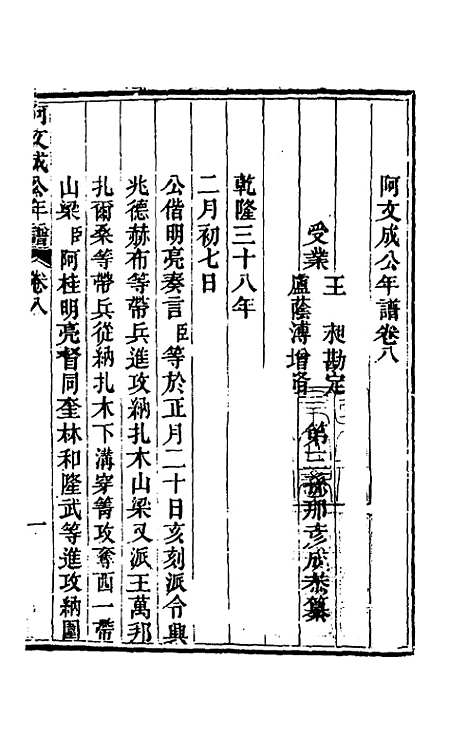 阿文成公年譜卷八
第三孫那彥成恭纂
受業
王昶勘定
盧蔭溥增脩
乾隆三十八年
二月初七日
公偕明亮奏言臣等於正月二十日亥刻派令興
兆德赫布等帶兵進攻納扎木山梁又派王萬邦
扎爾桑等帶兵從納扎木下溝穿箐攻奪西一帶
山梁臣阿桂明亮督同奎林和隆武等進攻納圍
阿文成公年譜 卷八
一